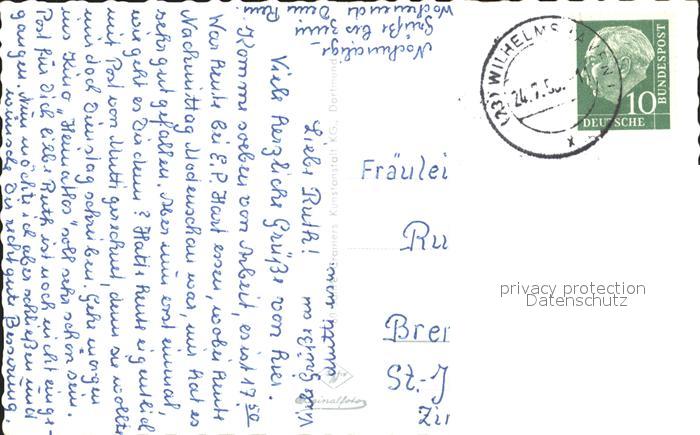 Liebe Ruth!
Viele herzliche Grüße von hier.
Komme soeben von Arbeit, es ist 17.50
War heute bei E.P. Hart essen, wobei heute
Nachmittag Modenschau war, uns hat es
sehr gut gefallen. Aber nun erst einmal,
wie geht es Dir denn? Hatte heute eigentlich
mit Post von Mutti gerechnet, denn sie wollte
uns doch Dienstag schreiben. Gehe morgen
ins Kino, soll sehr schön sein.
Post für Dich liebe Ruth ist noch nicht einge-
gangen. Nun möchte ich aber schließen und
wünsche Dir recht gute Besserung.
Nochmalige
Grüße bis zum
Wochenende Dein
Cramers Kunstanstalt KG., Dortmund
Originalfoto
(23) WILHELMSHAVEN 1
24.7.58
x
10
DEUTSCHE
BUNDESPOST
Fräulei
Ru
Brem
St.-J
privacy protection
Datenschutz